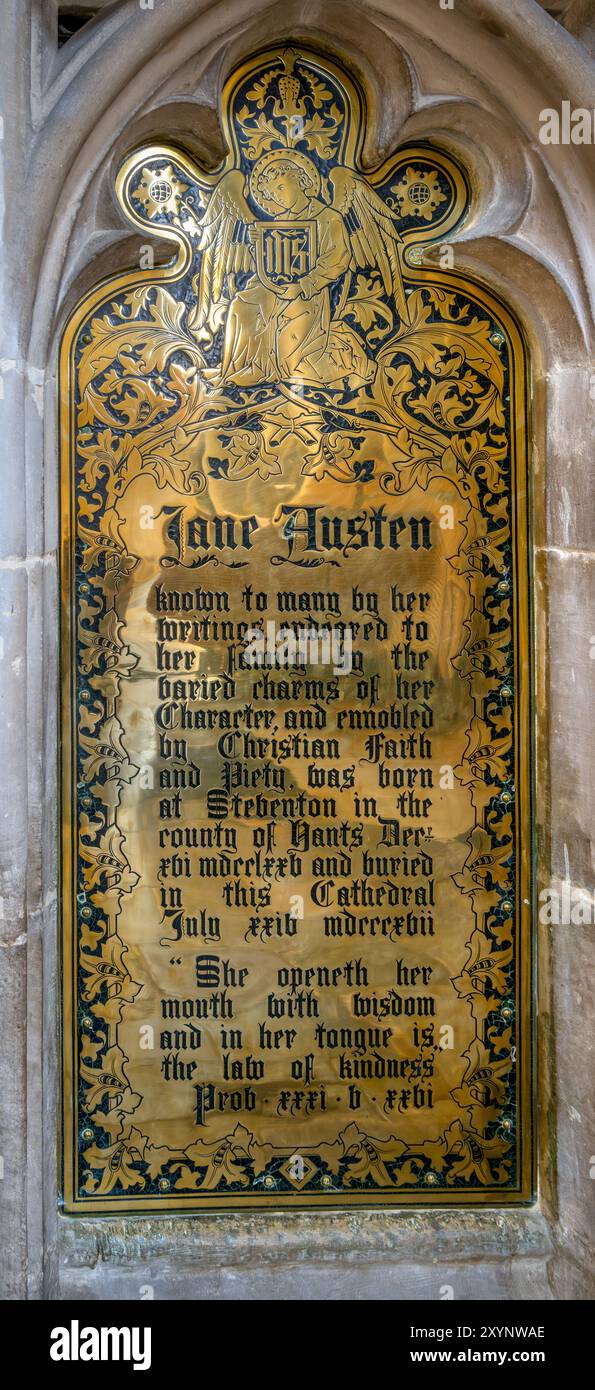 IHS
Jane Austen
known to many by her
writings, endeared to
her family by the
varied charms of her
Character, and ennobled
by Christian Faith
and Piety, was born
at Steventon in the
county of Hants Dec.r
xvi mdcclxxv and buried
in this Cathedral
July xxiv mdcccxvii
“ She openeth her
mouth with wisdom
and in her tongue is
the law of kindness „
Prov · xxxi · v · xxvi
alamy
Image ID: 2YYNWAE
www.alamy.com